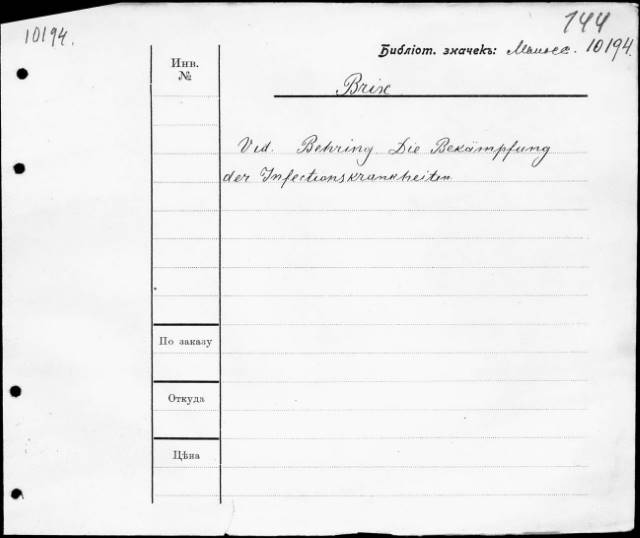 10194.
144
Библіот. значекъ: 10194.
Инв.
№
Brix
Vid. Behring Die Bekämpfung
der Infectionskrankheiten
По заказу
Откуда
Цѣна